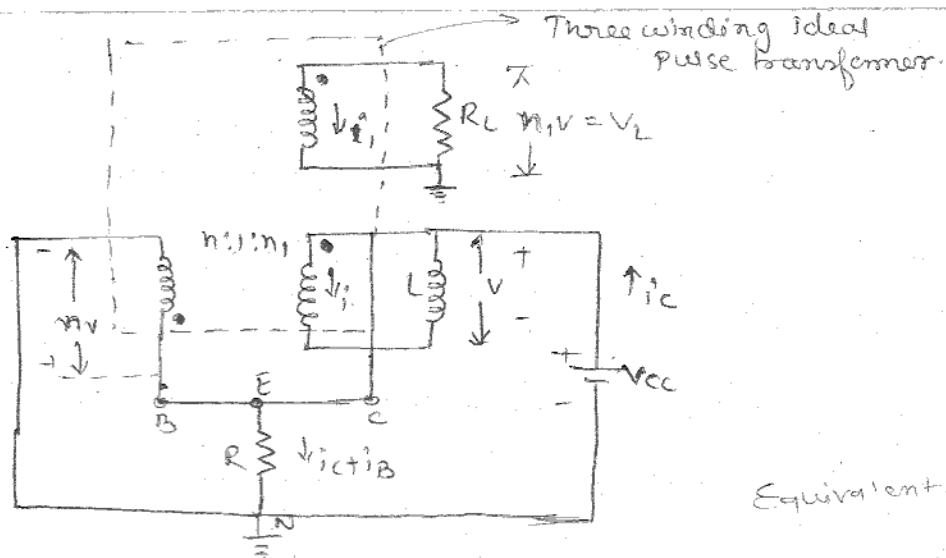 Three winding ideal
pulse transformer.
i₁
R_L n₁v = V_L
n:1:n₁
-
nv
+
i
L
v
+
-
i_C
+
V_CC
-
B
E
C
R
i_C+i_B
N
Equivalent